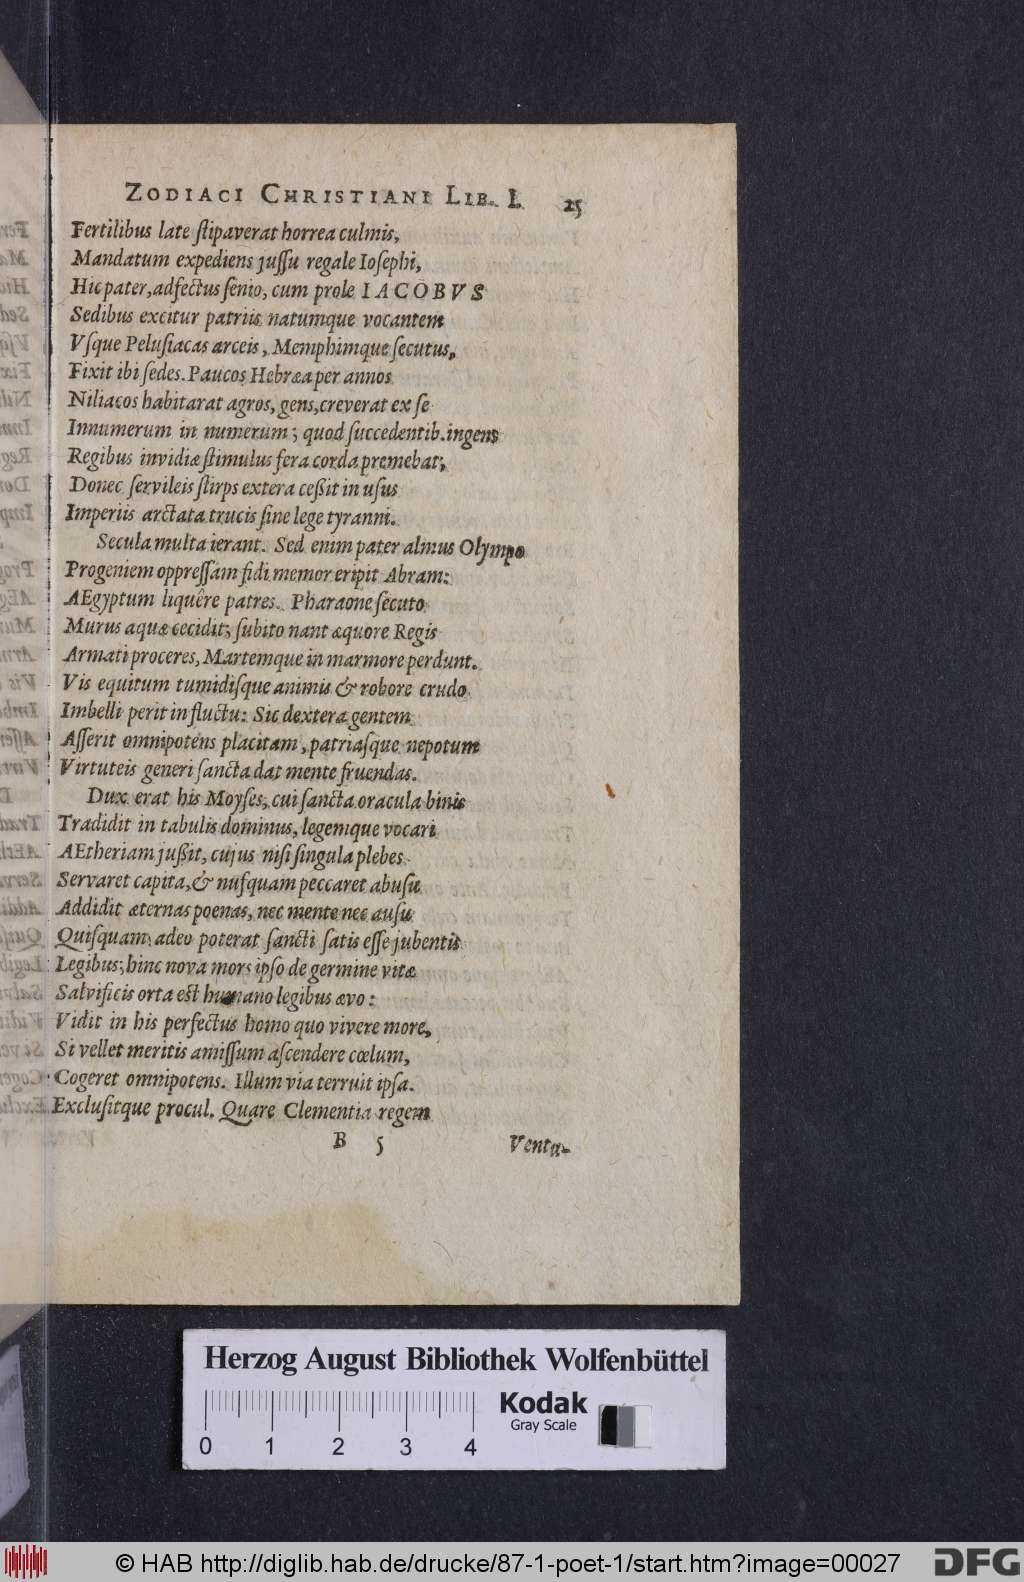 ZODIACI CHRISTIANI LIB. I. 25
Fertilibus late stipaverat horrea culmis,
Mandatum expediens jussu regale Iosephi,
Hic pater, adfectus senio, cum prole IACOBVS
Sedibus excitur patriis natumque vocantem
Vsque Pelusiacas arceis, Memphimque secutus,
Fixit ibi sedes. Paucos Hebræa per annos
Niliacos habitarat agros, gens, creverat ex se
Innumerum in numerum; quod succedentib. ingens
Regibus invidiæ stimulus fera corda premebat;
Donec servileis stirps extera ceßit in usus
Imperiis arctata trucis sine lege tyranni.
Secula multa ierant. Sed enim pater almus Olympo
Progeniem oppressam fidi memor eripit Abram:
AEgyptum liquêre patres. Pharaone secuto
Murus aquæ cecidit; subito nant æquore Regis
Armati proceres, Martemque in marmore perdunt.
Vis equitum tumidisque animis & robore crudo
Imbelli perit in fluctu: Sic dextera gentem
Asserit omnipotens placitam, patriasque nepotum
Virtuteis generi sancta dat mente fruendas.
Dux erat his Moyses, cui sancta oracula binis
Tradidit in tabulis dominus, legemque vocari
AEtheriam jußit, cujus nisi singula plebes
Servaret capita, & nusquam peccaret abusu
Addidit æternas poenas, nec mente nec ausu
Quisquam adeo poterat sancti satis esse jubentis
Legibus; hinc nova mors ipso de germine vitæ
Salvificis orta est humano legibus ævo:
Vidit in his perfectus homo quo vivere more,
Si vellet meritis amissum ascendere cœlum,
Cogeret omnipotens. Illum via terruit ipsa.
Exclusitque procul. Quare Clementia regem
B 5 Venta-
Herzog August Bibliothek Wolfenbüttel
Kodak
Gray Scale
0 1 2 3 4
© HAB http://diglib.hab.de/drucke/87-1-poet-1/start.htm?image=00027
DFG